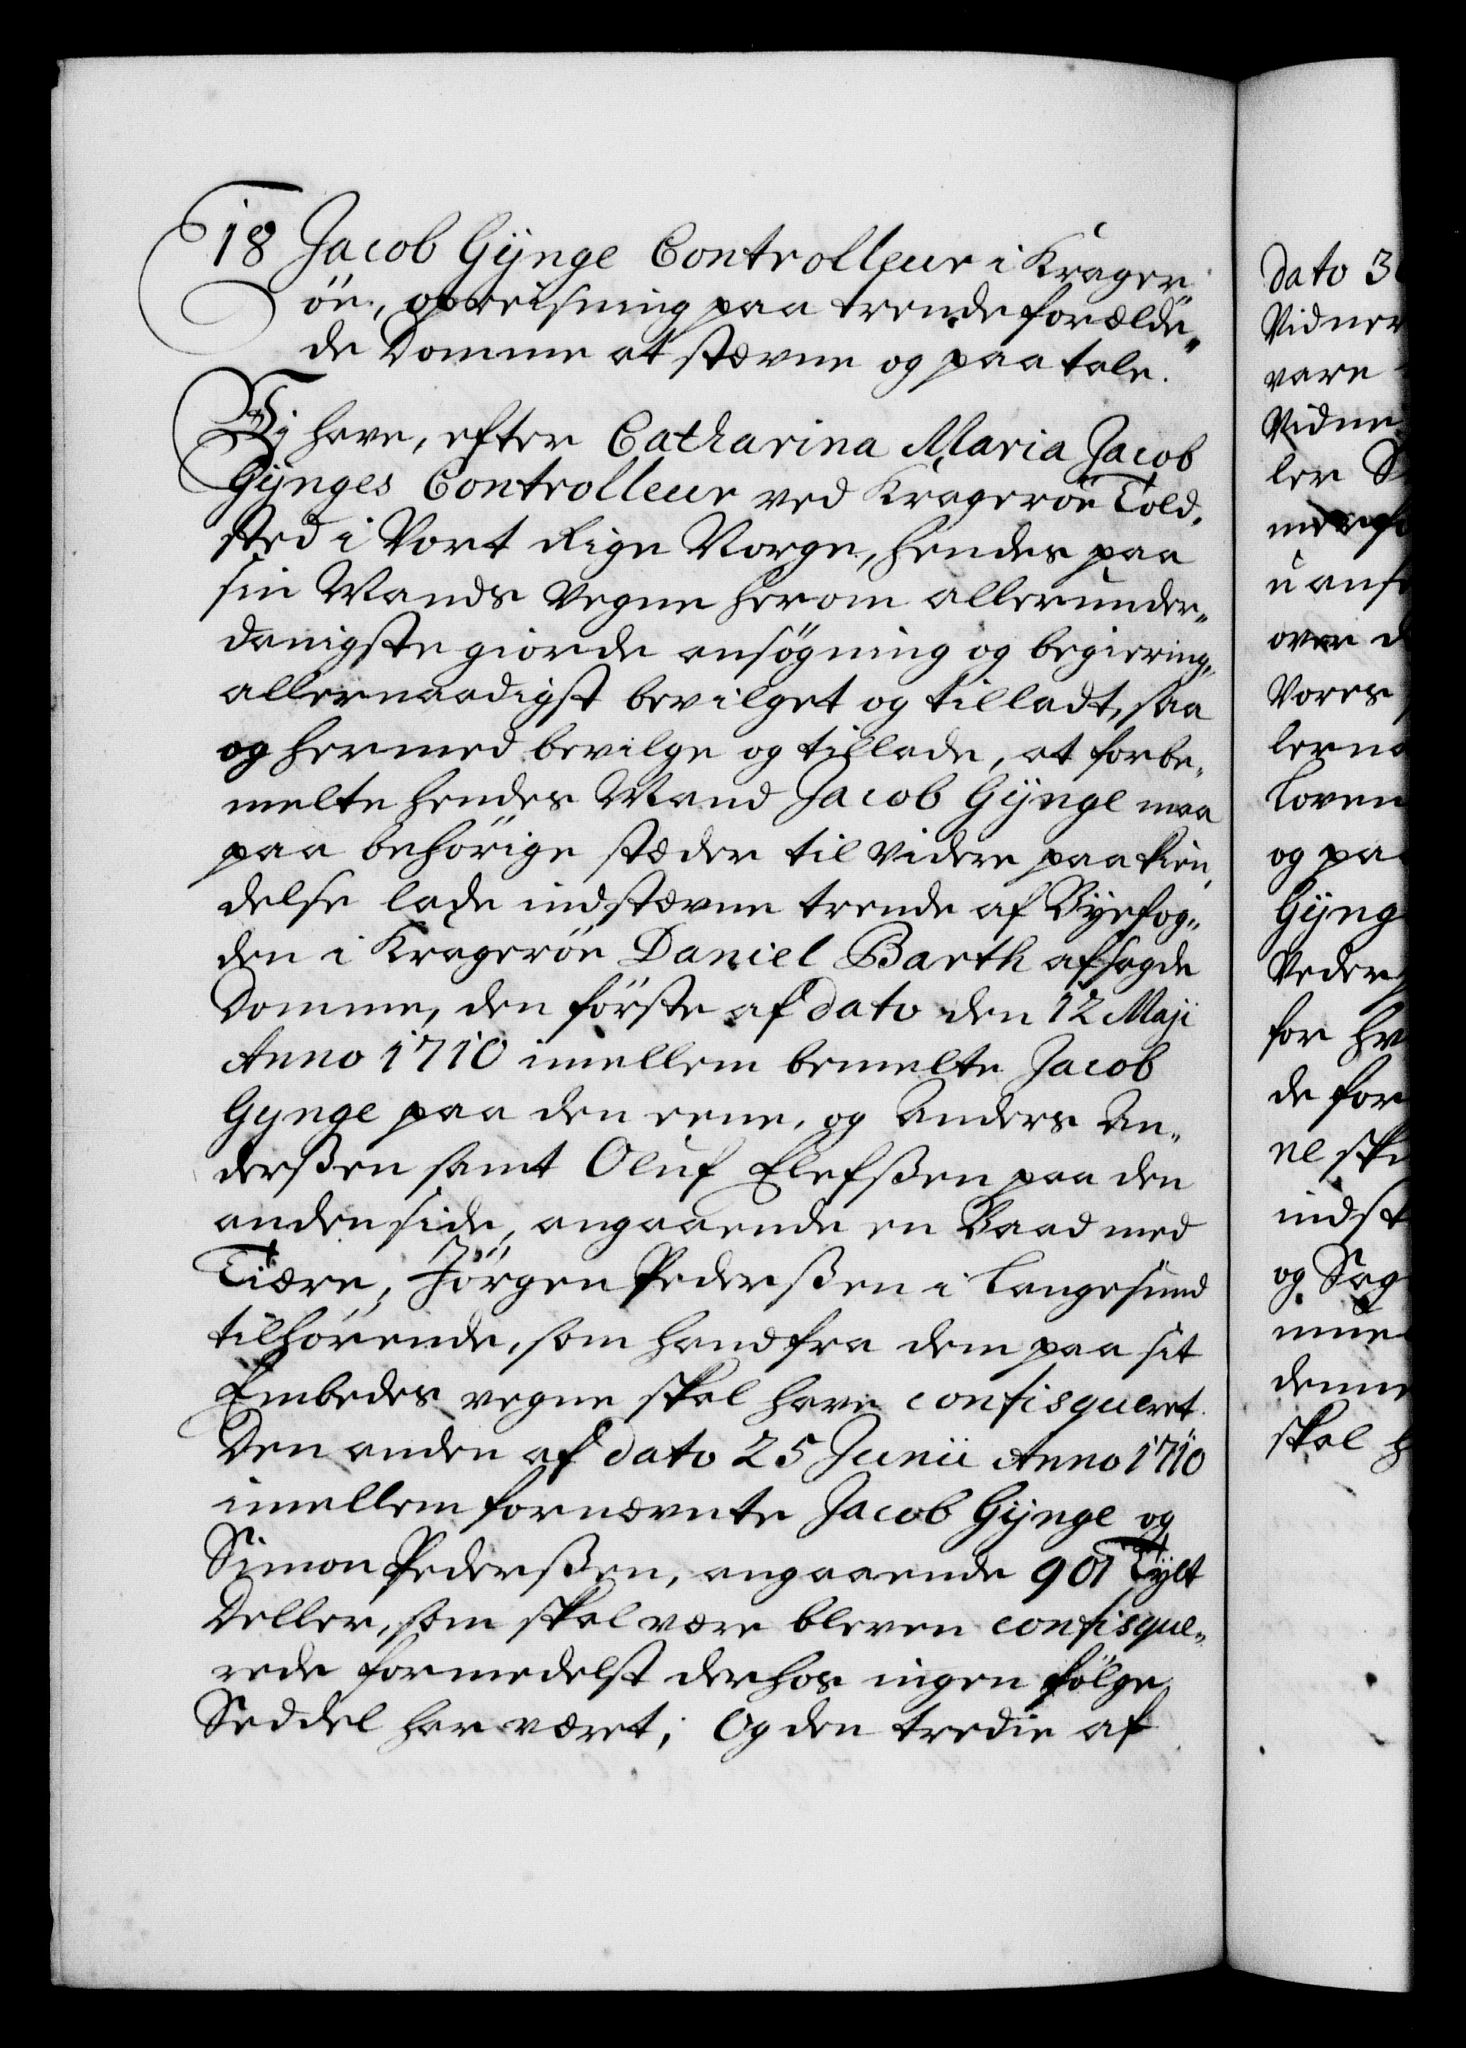 18 Jacob Gÿnge Controlleur i Krager
öe, opreisning paa trende forælde„
de Domme at stævne og paatale.
Vi have, efter Catharina Maria Jacob
Gÿnges Controlleur ved Krageröe Told„
sted i Vort Rige Norge, hendes paa
sin Mands Vegne herom allerunder„
danigste giorde ansögning og begiering,
allernaadigst bevilget og tilladt, saa
og hermed bevilge og tillade, at forbe„
melte hendes Mand Jacob Gÿnge maa
paa behörige stæder til videre paakien„
delse lade indstævne trende af Bÿefog„
den i Krageröe Daniel Barth afsagde
Domme, den förste af dato den 12 Maji
Anno 1710 imellem bemelte Jacob
Gynge paa den eene, og Anders An„
derßen samt Oluf Elefßen paa den
anden side, angaaende en Baad med
Tiære, Jörgen Pederßen i Langesund
tilhörende, som hand fra dem paa sit
Embedes vegne skal have confisqueret.
Den anden af dato 25 Junii Anno 1710
imellem fornævnte Jacob Gÿnge og
Simon Pederßen, angaaende 901 Tylt
Deller, som skal være bleven confisque„
rede formedelst derhos ingen fölge
Seddel har været; Og den tredie af
dato 3
Vidner
vare
Vidne
ler
uanse
over d
Vores
lerna
Loven
og paa
Gÿng
Peder
for hv
de for
ne ska
indst
og Sag
denne
skal h